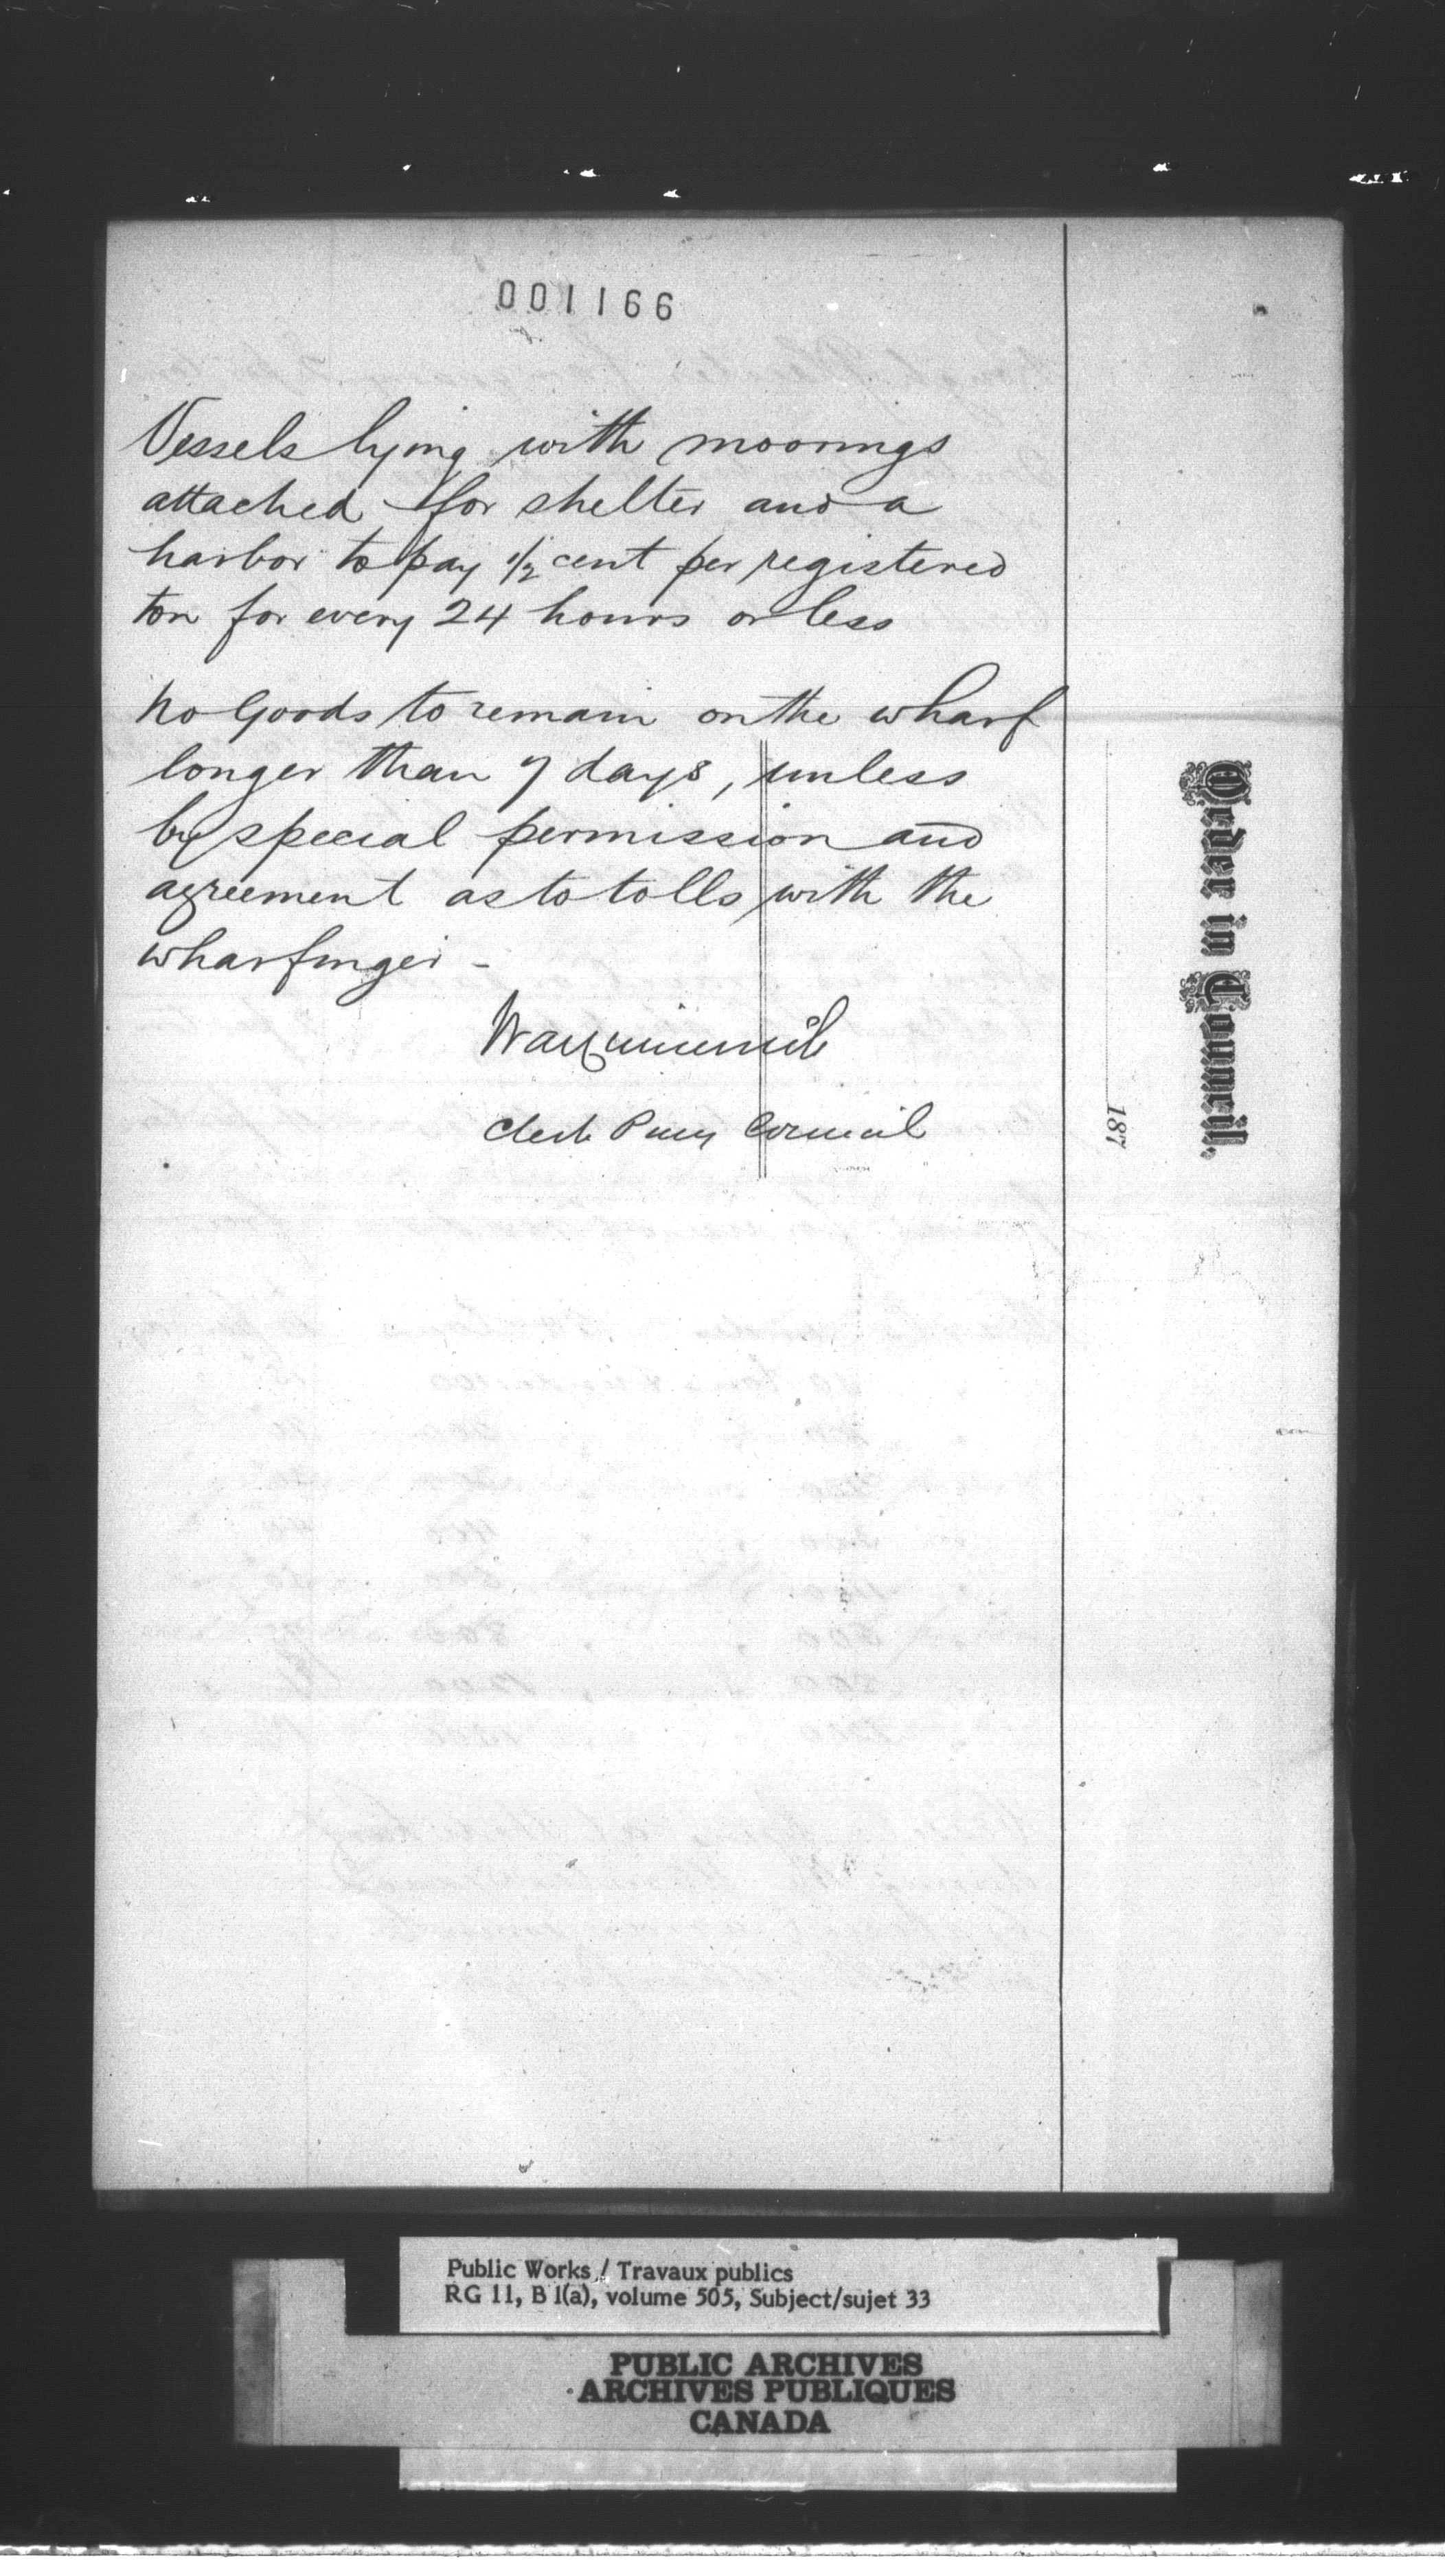 001166
Vessels lying with moorings
attached for shelter and a
harbor to pay 1/2 cent per registered
ton for every 24 hours or less
No Goods to remain on the wharf
longer than 7 days, unless
by special permission and
agreement as to tolls with the
wharfinger -
Clerk Privy Council
Order in Council.
187
Public Works / Travaux publics
RG 11, B 1(a), volume 505, Subject/sujet 33
PUBLIC ARCHIVES
ARCHIVES PUBLIQUES
CANADA